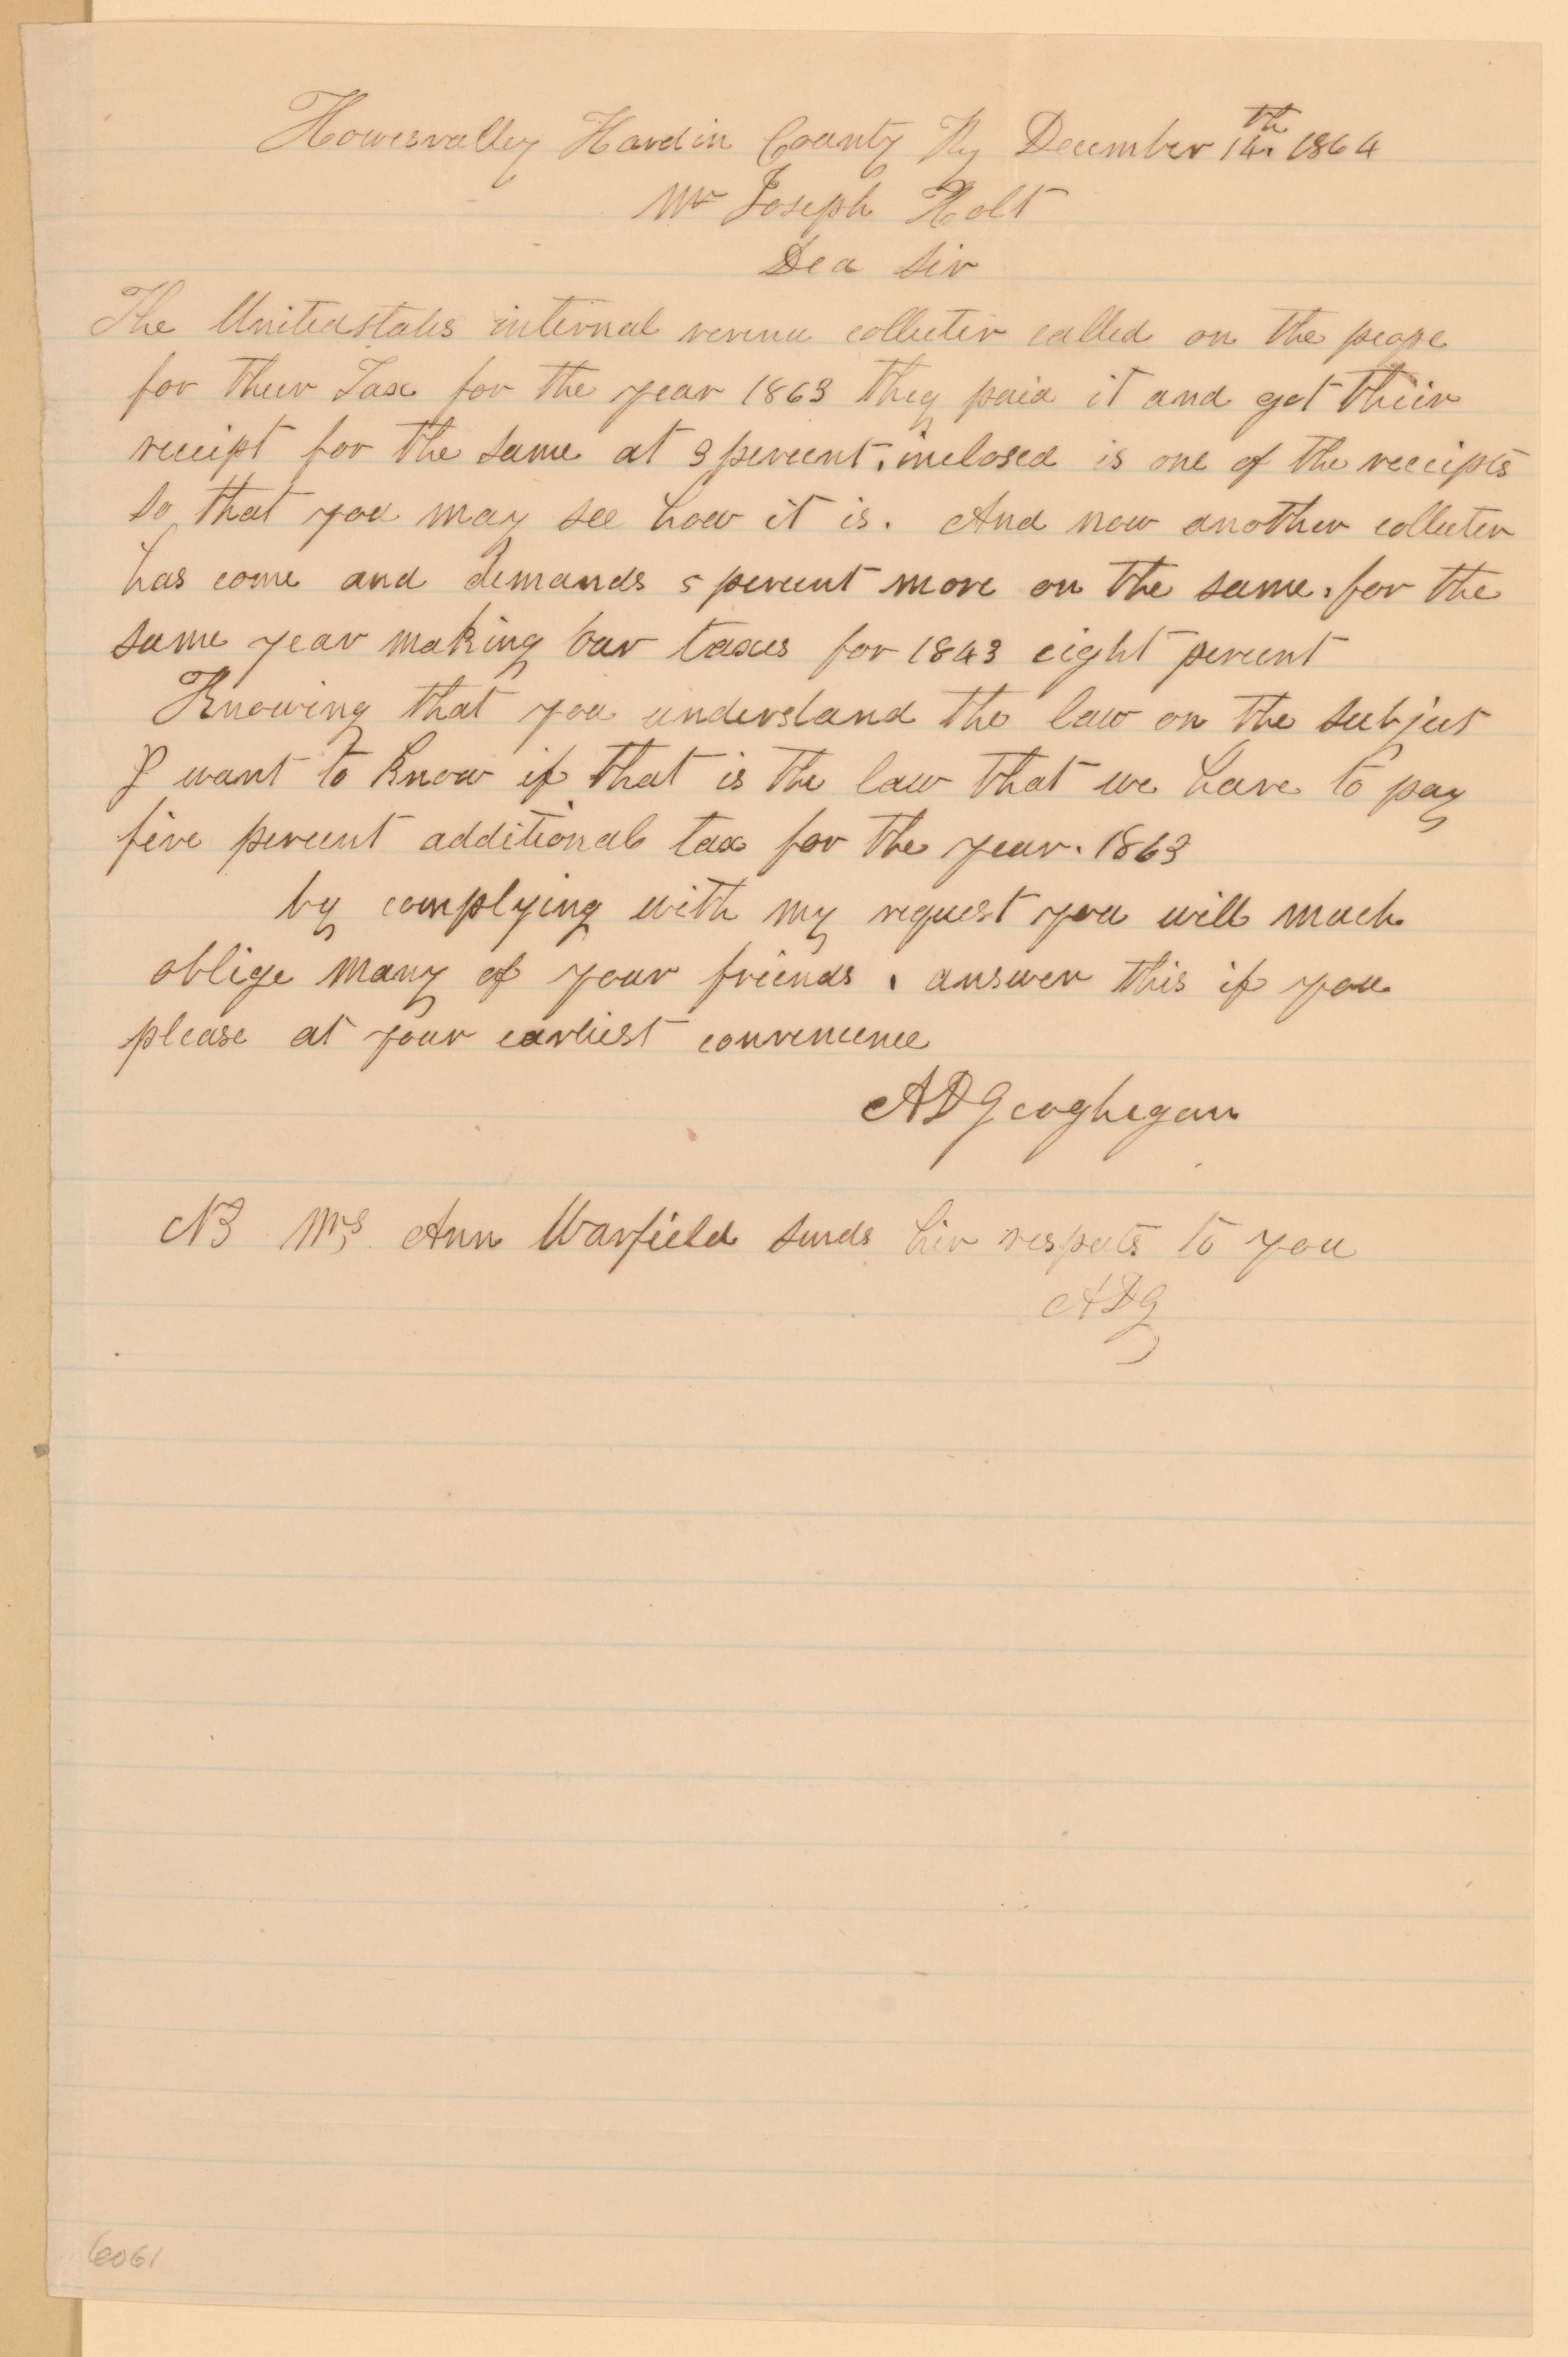 Howesvalley Hardin County Ky December 14th 1864
Mr Joseph Holt
Dea Sir
The Unitedstates internal revenu collecter called on the peope
for their Tax for the year 1863 they paid it and got their
receipt for the same at 3 percent. inclosed is one of the receipts
so that you may see how it is. And now another collecter
has come and demands 5 percent more on the same. for the
same year making our taxes for 1843 eight percent
Knowing that you understand the law on the subject
I want to know if that is the law that we have to pay
five percent additional tax for the year. 1863
by complying with my request you will much
oblige many of your friends. answer this if you
please at your earliest convenience
A D Geoghegan
NB Mrs Ann Warfield sends her respects to you
ADG
6061